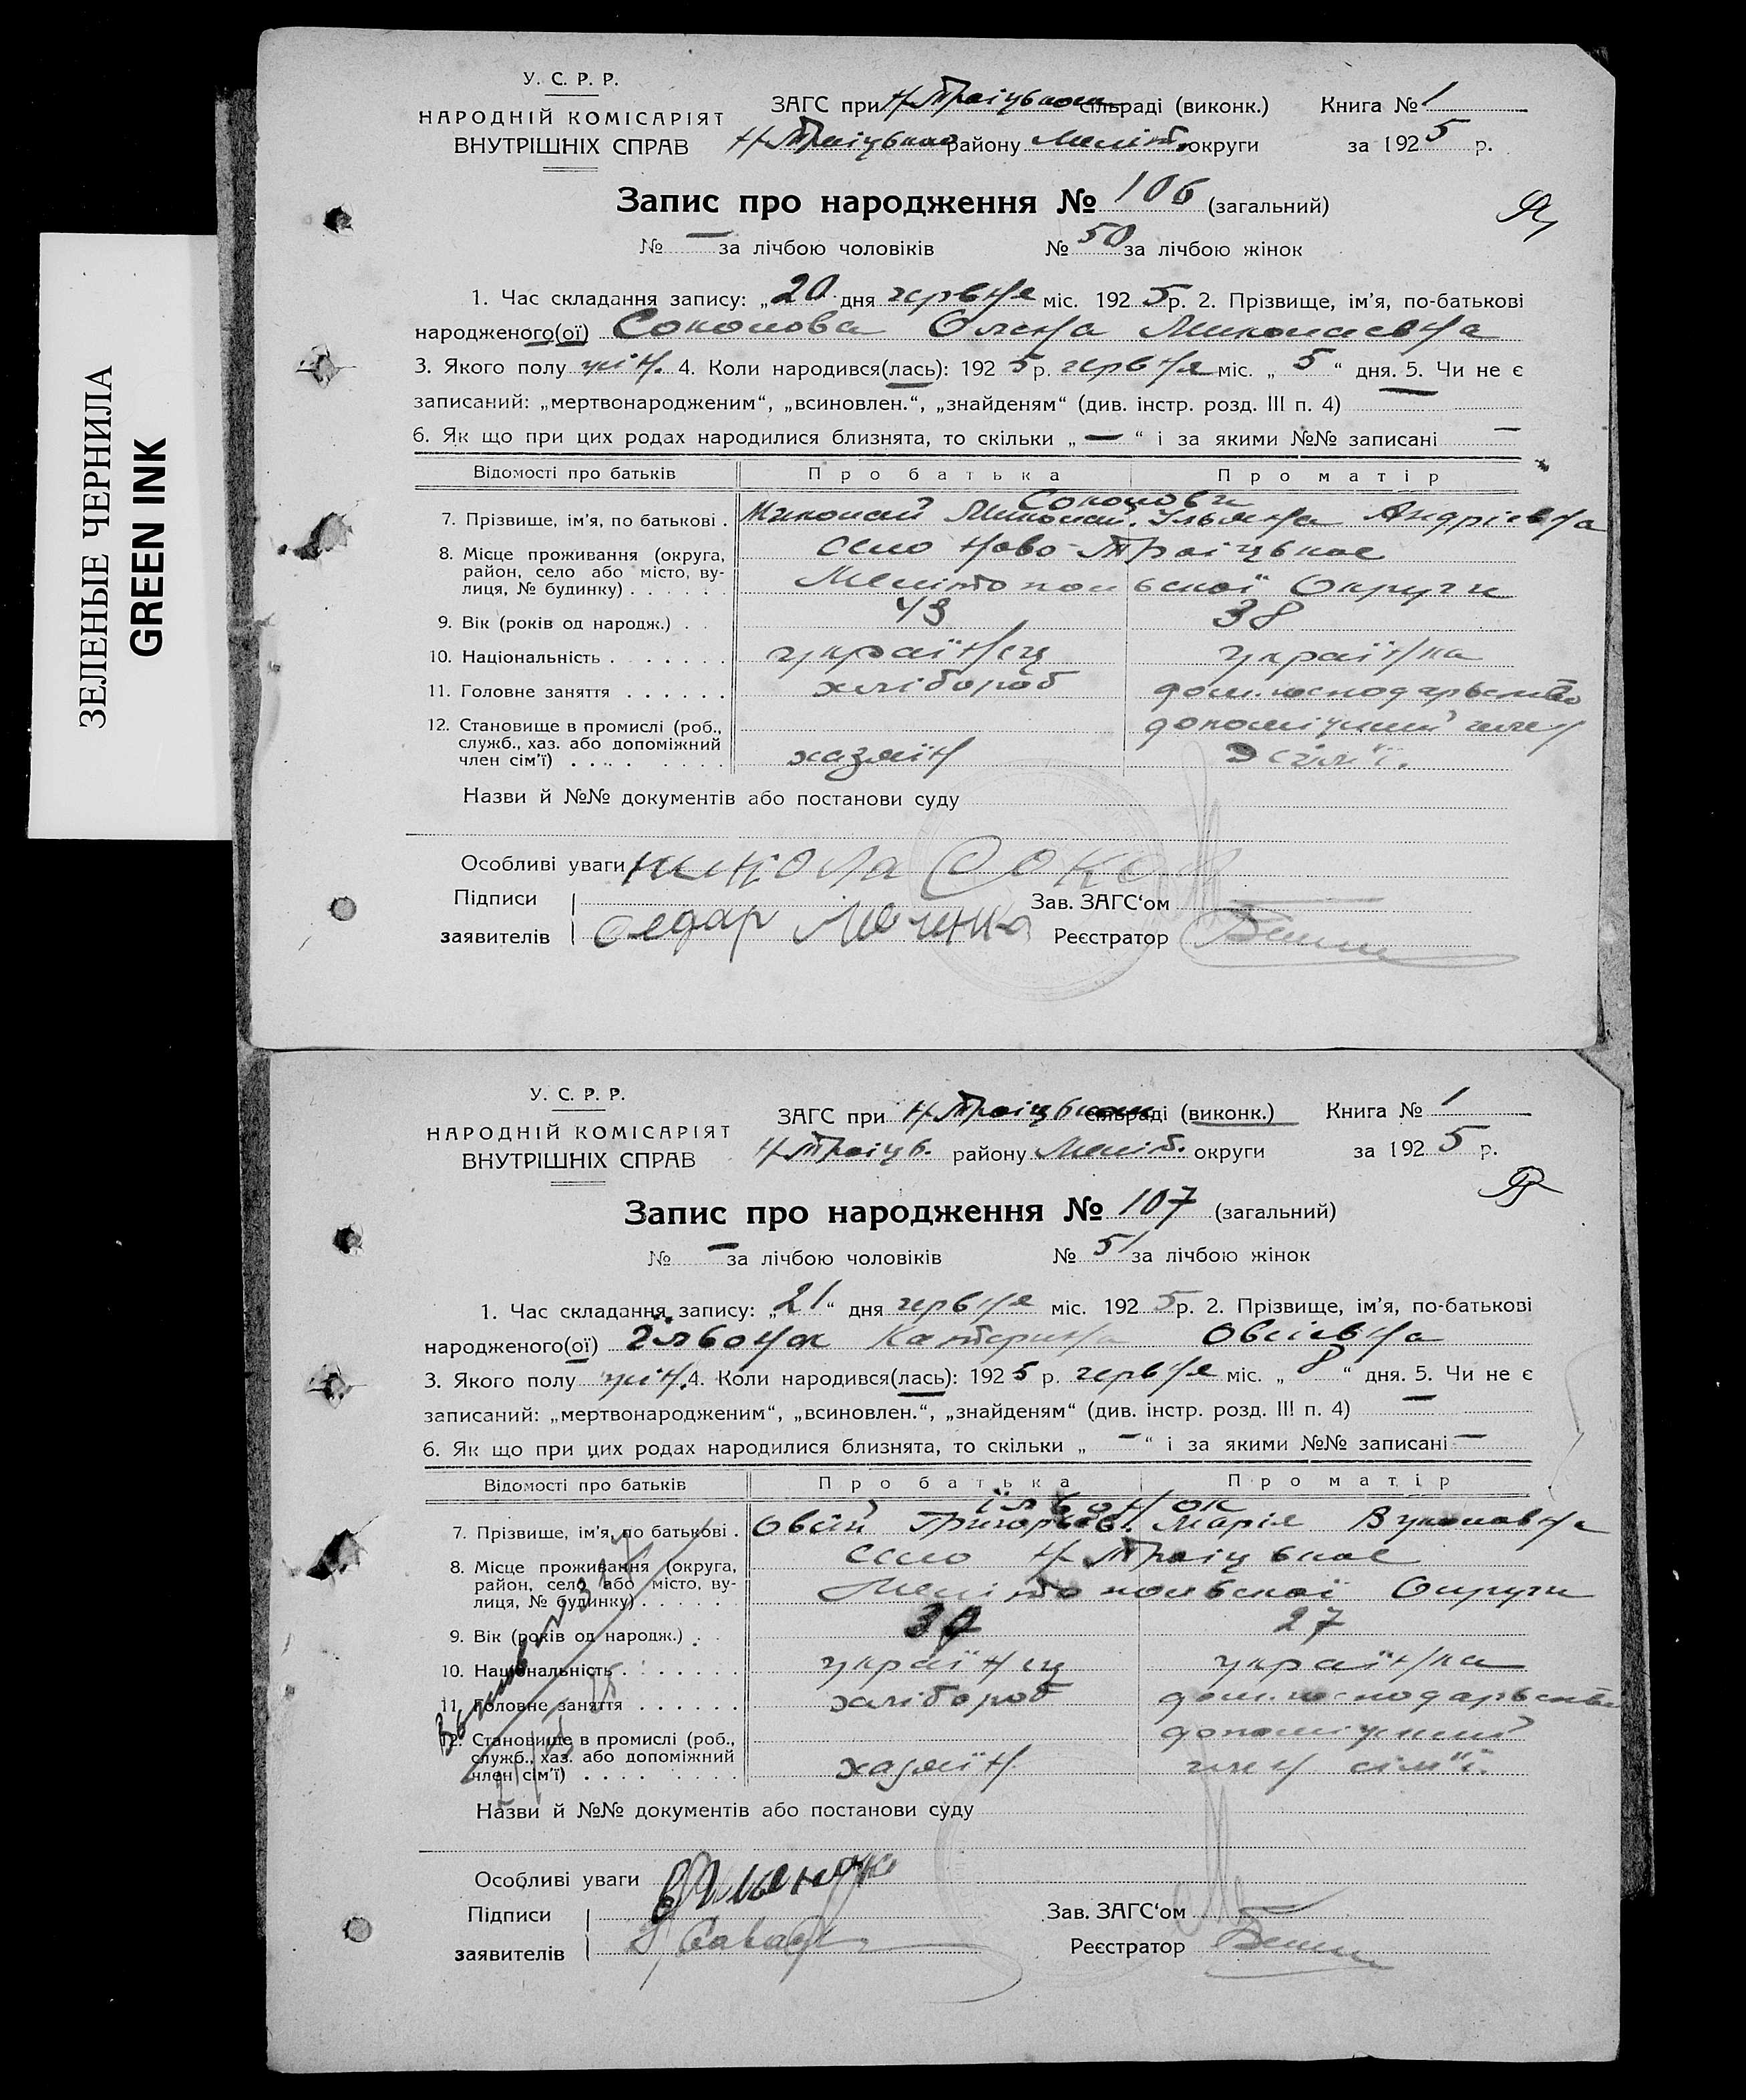 ЗЕЛЕНЫЕ ЧЕРНИЛА
GREEN INK
У. С. Р. Р.
НАРОДНІЙ КОМІСАРІЯТ
ВНУТРІШНІХ СПРАВ
ЗАГС при Н-Троіцьком сільраді (виконк.) Книга № 1
Н-Троіцького району Меліт. округи за 1925 р.
Запис про народження № 106 (загальний)
№ — за лічбою чоловіків № 50 за лічбою жінок
1. Час складання запису: „20 дня червня міс. 1925 р. 2. Прізвище, ім'я, по-батькові
народженого(ої) Соколова Олена Миколаєвна
3. Якого полу жін. 4. Коли народився(лась): 1925 р. червня міс. „ 5 “ дня. 5. Чи не є
записаний: „мертвонародженим“, „всиновлен.“, „знайденям“ (див. інстр. розд. III п. 4) —
6. Як що при цих родах народилися близнята, то скільки „ — “ і за якими №№ записані —
Відомості про батьків Про батька Про матір
Соколови
7. Прізвище, ім'я, по батькові . Николай Миколай. Ульяна Андрієвна
8. Місце проживання (округа, район, село або місто, вулиця, № будинку) . . . . . . село Ново-Троіцькое
Мелітопольскої Округи
9. Вік (років од народж.) . . 43 38
10. Національність . . . . . . . українець українка
11. Головне заняття . . . . . . хлібороб дом. господарьство
12. Становище в промислі (роб., служб., хаз. або допоміжний член сім'ї) . . . . . . . . . хазяїн допоміжний член сім'ї.
Назви й №№ документів або постанови суду
Особливі уваги
Підписи Зав. ЗАГС‘ом
заявителів Реєстратор
У. С. Р. Р.
НАРОДНІЙ КОМІСАРІЯТ
ВНУТРІШНІХ СПРАВ
ЗАГС при Н-Троіцьком сільраді (виконк.) Книга № 1
Н-Троіцьк. району Меліт. округи за 1925 р.
Запис про народження № 107 (загальний)
№ — за лічбою чоловіків № 51 за лічбою жінок
1. Час складання запису: „21“ дня червня міс. 1925 р. 2. Прізвище, ім'я, по-батькові
народженого(ої) Катерина Овсієвна
3. Якого полу жін. 4. Коли народився(лась): 1925 р. червня міс. „ 8 “ дня. 5. Чи не є
записаний: „мертвонародженим“, „всиновлен.“, „знайденям“ (див. інстр. розд. III п. 4) —
6. Як що при цих родах народилися близнята, то скільки „ — “ і за якими №№ записані —
Відомості про батьків Про батька Про матір
7. Прізвище, ім'я, по батькові . Овсій Григорьєв. Марія
8. Місце проживання (округа, район, село або місто, вулиця, № будинку) . . . . . . село Н-Троіцькое
Мелітопольскої Округи
9. Вік (років од народж.) . . 27
10. Національність . . . . . . . українець українка
11. Головне заняття . . . . . . хлібороб дом. господарьство
12. Становище в промислі (роб., служб., хаз. або допоміжний член сім'ї) . . . . . . . . . хазяїн допоміжний член сім'ї.
Назви й №№ документів або постанови суду
Особливі уваги
Підписи Зав. ЗАГС‘ом
заявителів Реєстратор